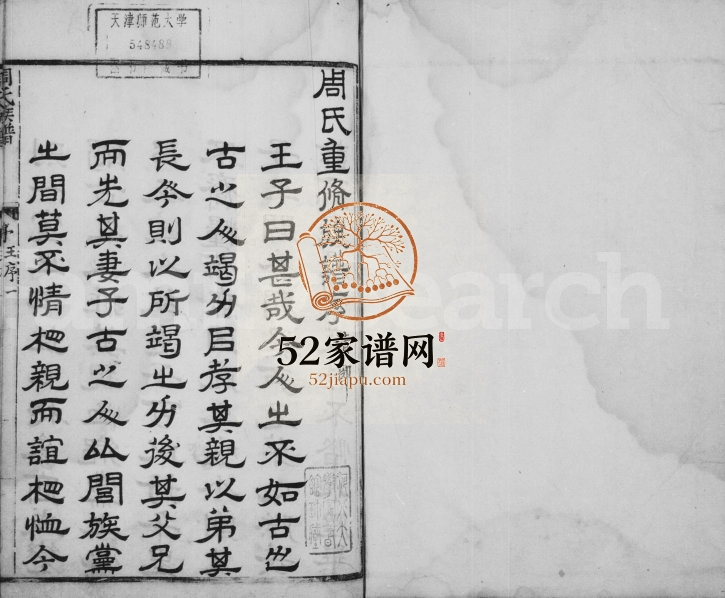 天津师范大学
548488
周氏重脩族譜序
王子曰甚哉今人之不如古也
古之人竭力㠯孝其親以弟其
長今則以所竭之力後其父兄
而先其妻子古之人比閭族黨
之間莫不情相親而誼相恤今
周氏族譜
序
王序一
52家谱网
52jiapu.com
search